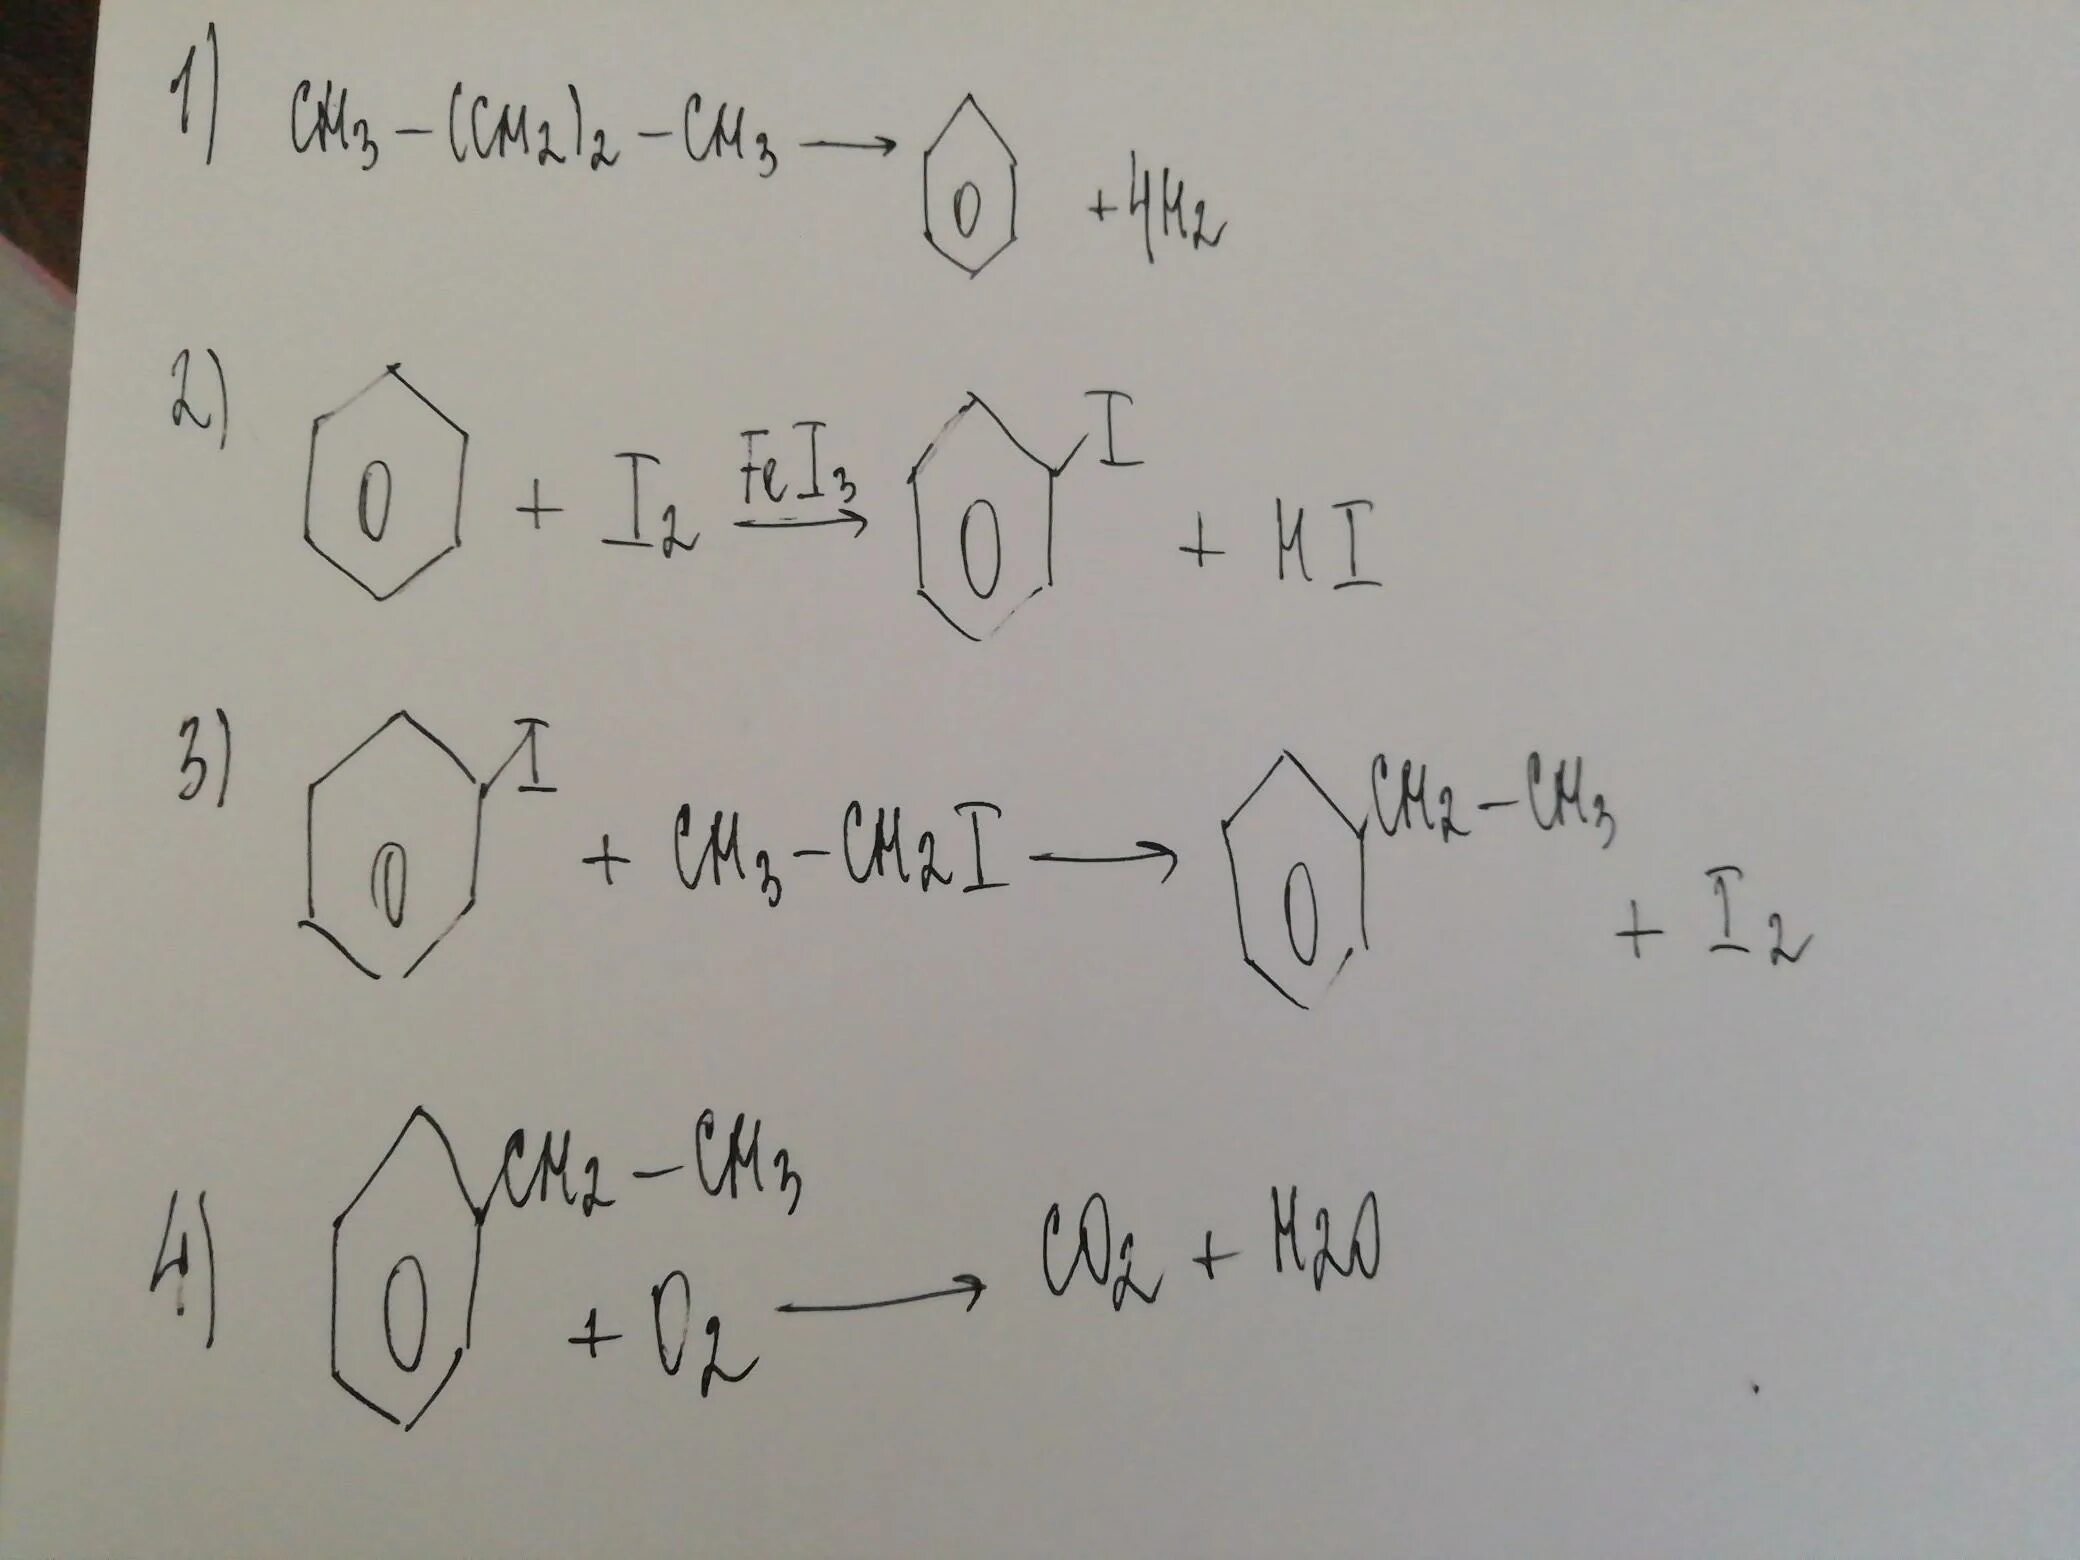 1) CH3 – (CH2)2 – CH3 → + 4H2
2) + I2 FeI3 → I + HI
3) I + CH3 – CH2I → CH2 – CH3 + I2
4) CH2 – CH3 + O2 → CO2 + H2O